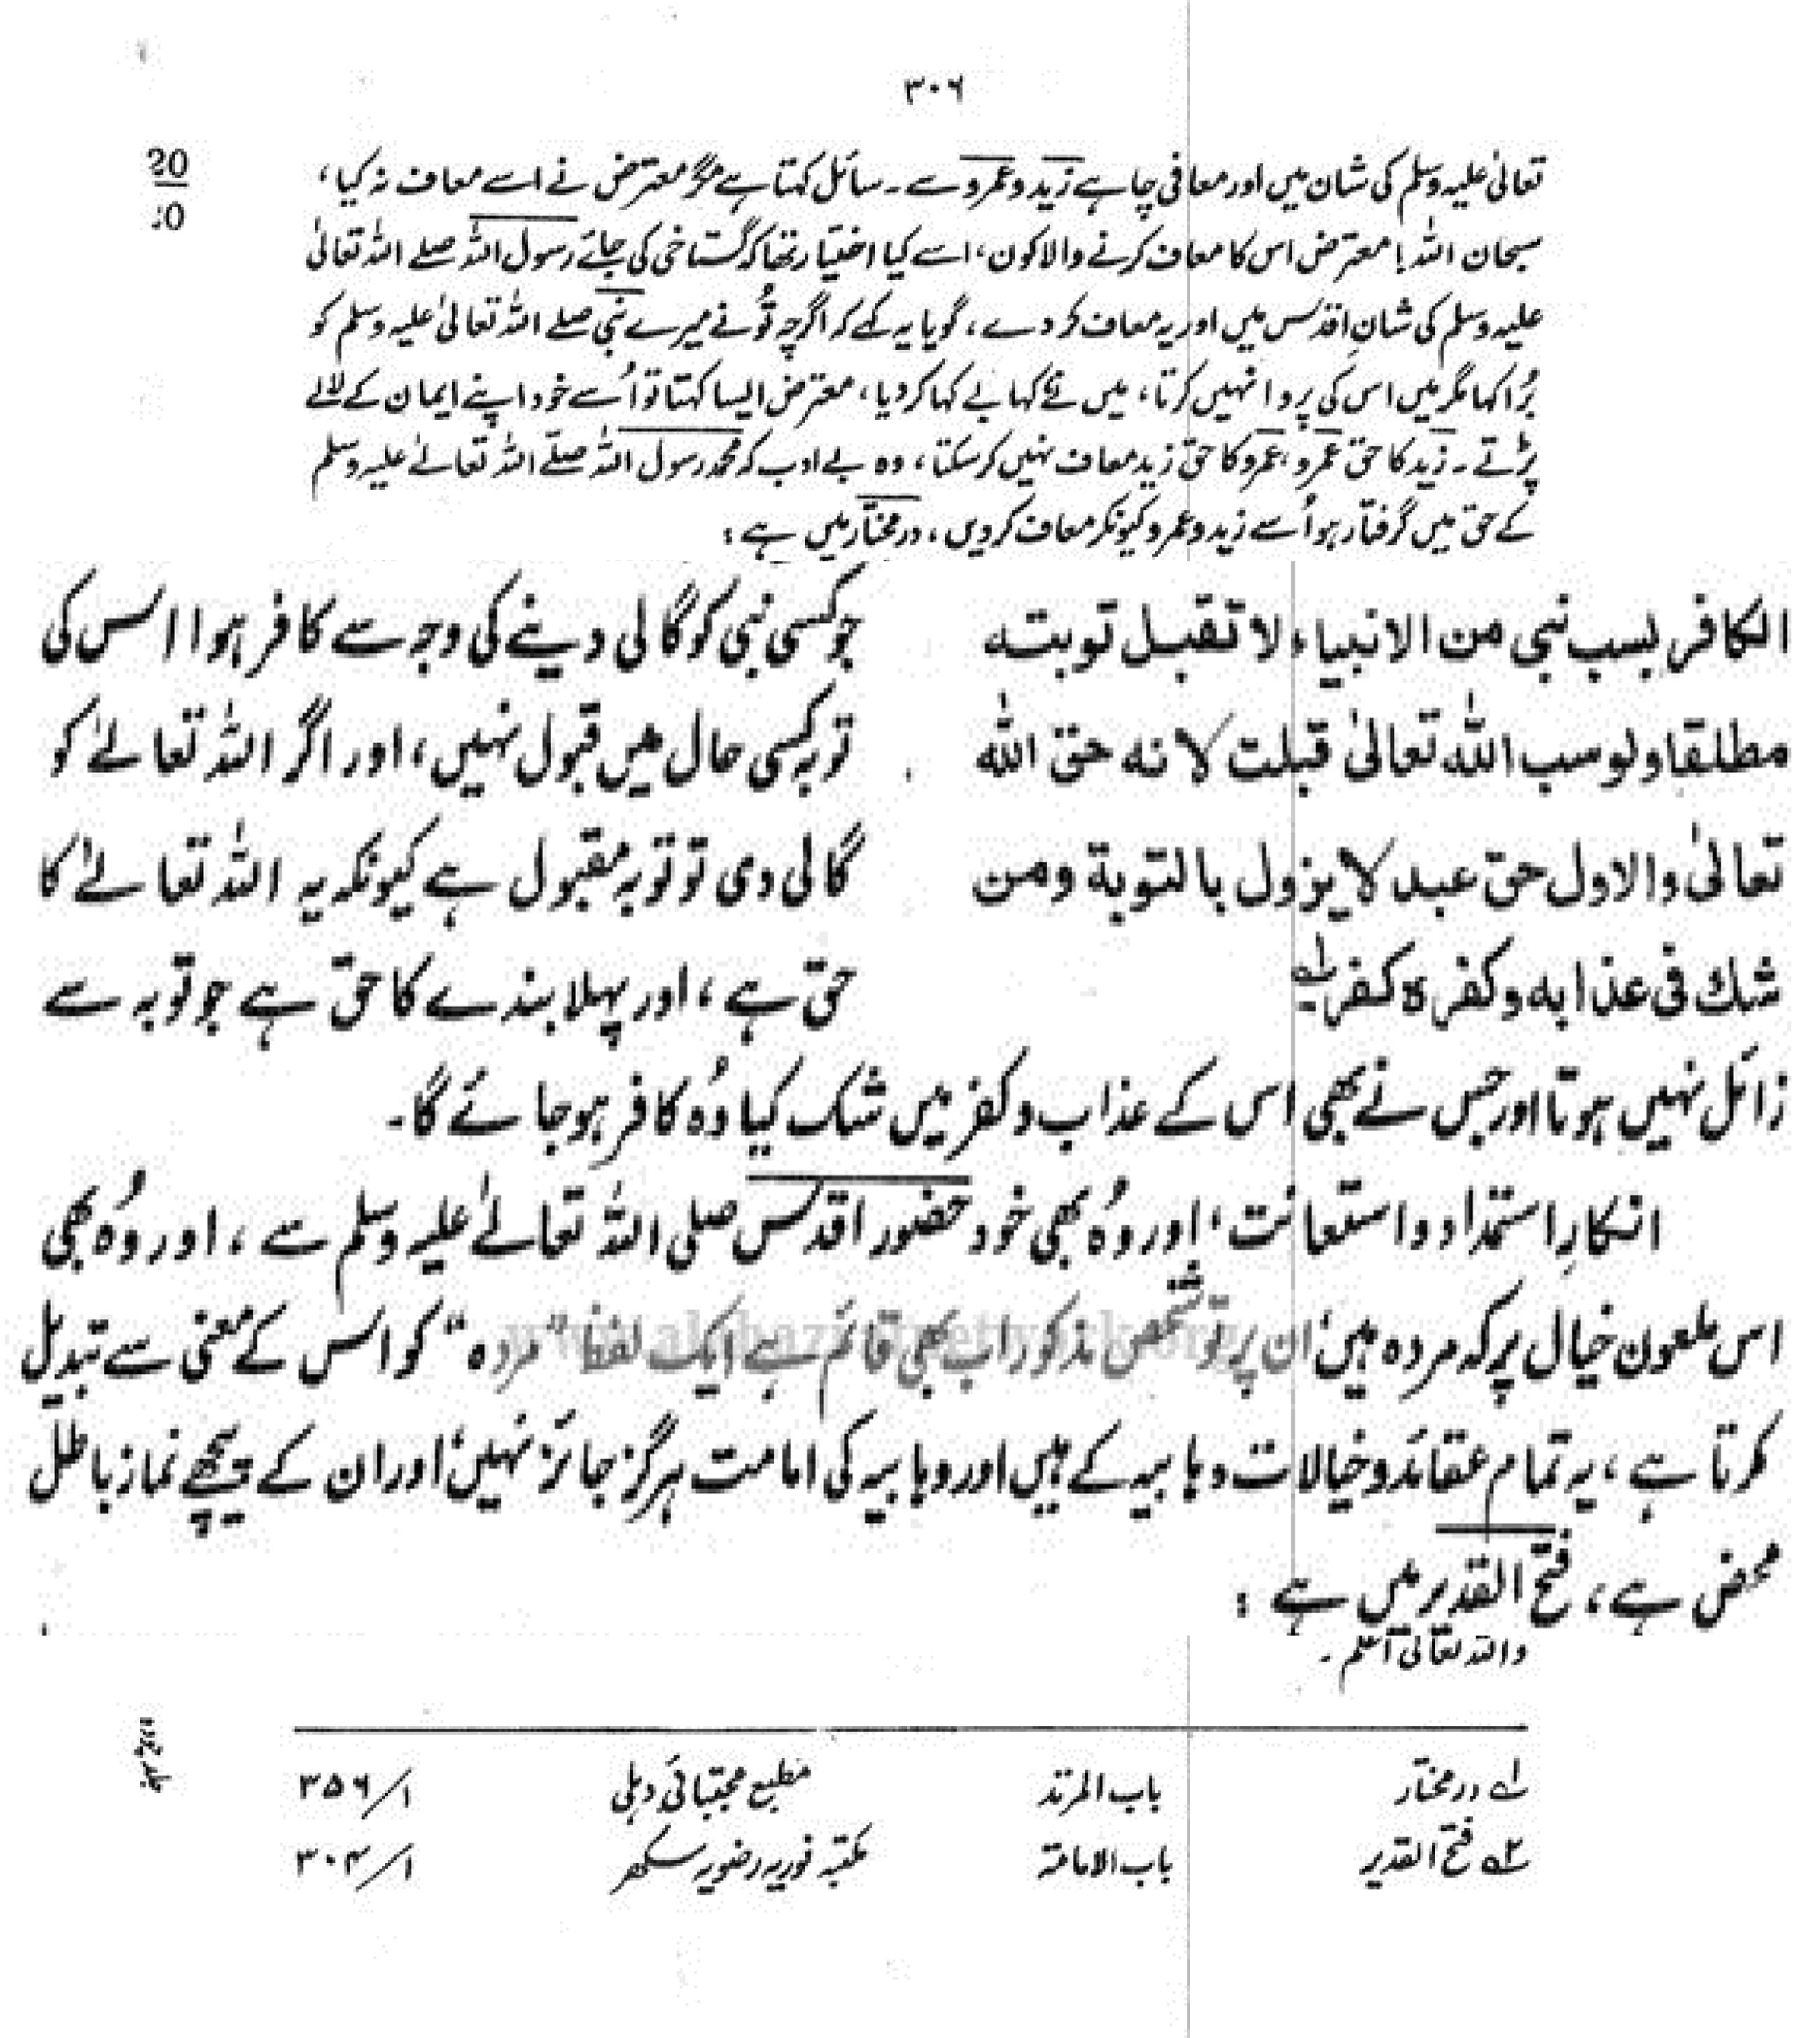 ۳۰۶
تعالیٰ علیہ وسلم کی شان میں اور معافی چاہے زید و عمرو سے ۔ سائل کہتا ہے مگر معترض نے اسے معاف نہ کیا،
سبحان اللہ! معترض اس کا معاف کرنے والا کون، اسے کیا اختیار تھا کہ گستاخی کی جائے رسول اللہ صلے اللہ تعالیٰ
علیہ وسلم کی شانِ اقدس میں اور یہ معاف کر دے، گویا یہ کہے کہ اگرچہ تُو نے میرے نبی صلے اللہ تعالیٰ علیہ وسلم کو
بُرا کہا مگر میں اس کی پروا نہیں کرتا، میں نے کہا بے کہا کر دیا، معترض ایسا کہتا تو اُسے خود اپنے ایمان کے لالے
پڑتے ۔ زید کا حق عمرو، عمرو کا حق زید معاف نہیں کر سکتا، وہ بے ادب کہ محمد رسول اللہ صلّے اللہ تعالےٰ علیہ وسلم
کے حق میں گرفتار ہو اُسے زید و عمرو کیونکر معاف کر دیں، درمختار میں ہے :
الکافر بسب نبی من الانبیاء لا تقبل توبتہ
مطلقا ولو سب اللہ تعالیٰ قبلت لانہ حق اللہ
تعالیٰ والاول حق عبد لا یزول بالتوبۃ ومن
شك فی عذابہ وکفرہ کفر۱؎
جو کسی نبی کو گالی دینے کی وجہ سے کافر ہوا اس کی
توبہ کسی حال میں قبول نہیں، اور اگر اللہ تعالےٰ کو
گالی دی تو توبہ مقبول ہے کیونکہ یہ اللہ تعالےٰ کا
حق ہے، اور پہلا بندے کا حق ہے جو توبہ سے
زائل نہیں ہوتا اور جس نے بھی اس کے عذاب و کفر میں شک کیا وُہ کافر ہو جائے گا۔
انکارِ استمداد و استعانت، اور وُہ بھی خود حضور اقدس صلی اللہ تعالےٰ علیہ وسلم سے، اور وُہ بھی
اس ملعون خیال پر کہ مردہ ہیں، ان پر تو شخص مذکور اب بھی قائم ہے ایک لفظ "مردہ" کو اس کے معنی سے تبدیل
کرتا ہے، یہ تمام عقائد و خیالات وہابیہ کے ہیں اور وہابیہ کی امامت ہرگز جائز نہیں، اور ان کے پیچھے نماز باطل
محض ہے، فتح القدیر میں ہے :
واللہ تعالیٰ اعلم ۔
۱؎ درمختار باب المرتد مطبع مجتبائی دہلی ۱/۳۵۶
۲؎ فتح القدیر باب الامامۃ مکتبہ نوریہ رضویہ سکھر ۱/۳۰۴